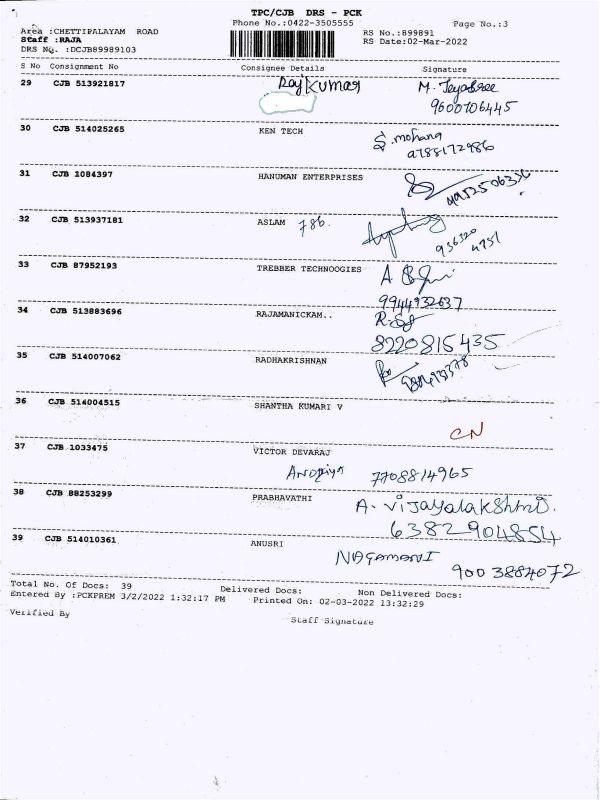 TPC/CJB DRS - PCK
Phone No.:0422-3505555 Page No.:3
Area :CHETTIPALAYAM ROAD RS No.:899891
Staff :RAJA RS Date:02-Mar-2022
DRS No. :DCJB89989103
S No Consignment No Consignee Details Signature
29 CJB 513921817 Rajkumar M. Jeyasree
9600706445
30 CJB 514025265 KEN TECH S. mohana
9788172986
31 CJB 1084397 HANUMAN ENTERPRISES
32 CJB 513937181 ASLAM 786.
936320
4751
33 CJB 87952193 TREBBER TECHNOOGIES
9944932637
34 CJB 513883696 RAJAMANICKAM..
8220815435
35 CJB 514007062 RADHAKRISHNAN
36 CJB 514004515 SHANTHA KUMARI V
CN
37 CJB 1033475 VICTOR DEVARAJ
7708814965
38 CJB 88253299 PRABHAVATHI A. Vijayalakshmi.
6382904854
39 CJB 514010361 ANUSRI
NAGAMANI
9003884072
Total No. Of Docs: 39 Delivered Docs: Non Delivered Docs:
Entered By :PCKPREM 3/2/2022 1:32:17 PM Printed On: 02-03-2022 13:32:29
Verified By Staff Signature